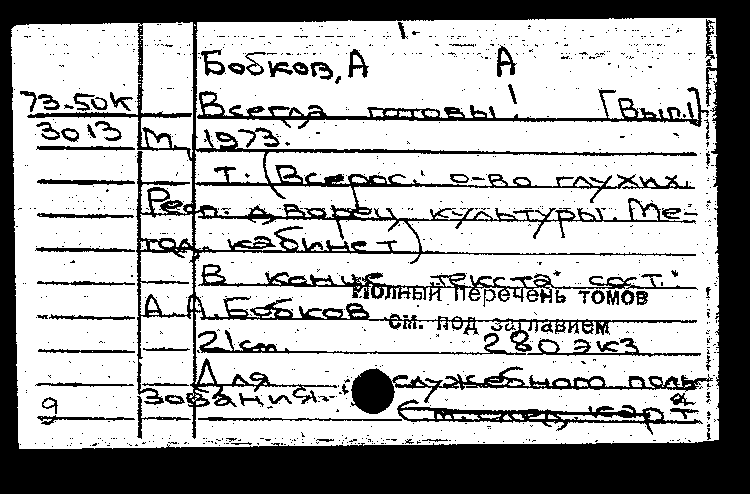 1.
Бобков, А А
73-50к Всегда готовы! [Вып.1]
3013 М., 1973.
т. (Всерос. о-во глухих.
Респ. дворец культуры. Ме-
тод. кабинет)
В конце текста сост.:
А.А. Бобков
Полный перечень томов
см. под заглавием
21 см. 280 экз
Для служебного поль-
зования.
См. след. карт
9